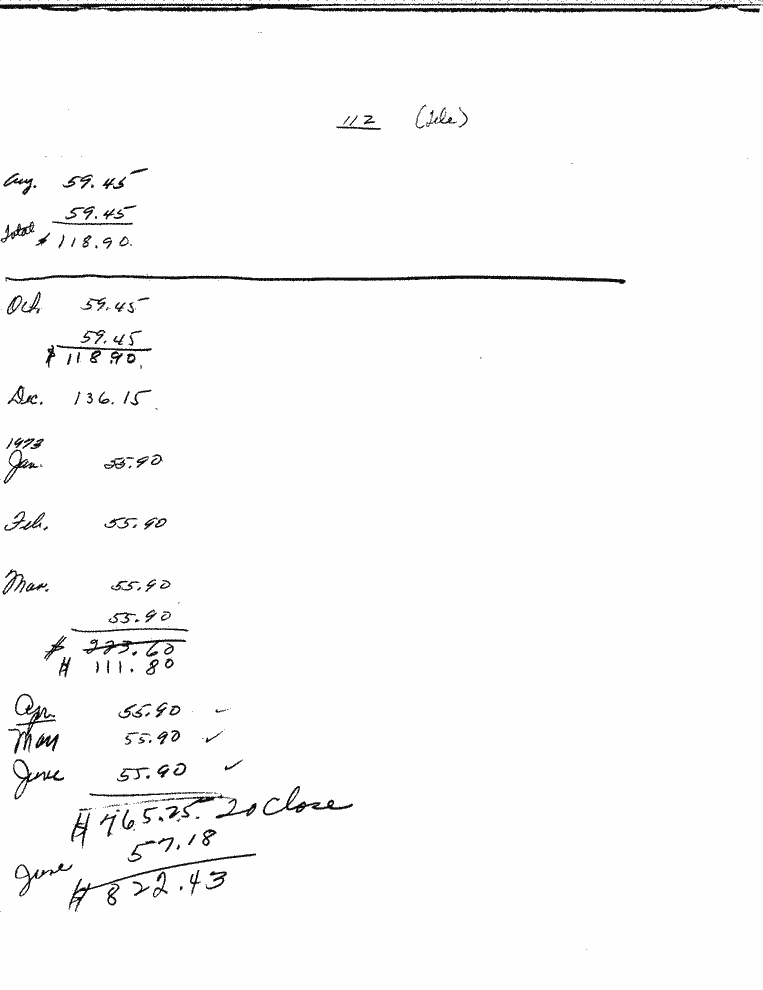 112 (Tele)
Aug. 59.45
59.45
Total $118.90
Oct. 59.45
59.45
$118.90
Dec. 136.15
1973
Jan. 55.90
Feb. 55.90
Mar. 55.90
55.90
$ 223.60
$ 111.80
Apr. 55.90 -
May 55.90 ✓
June 55.90 ✓
$765.25 20 Close
June 57.18
$822.43